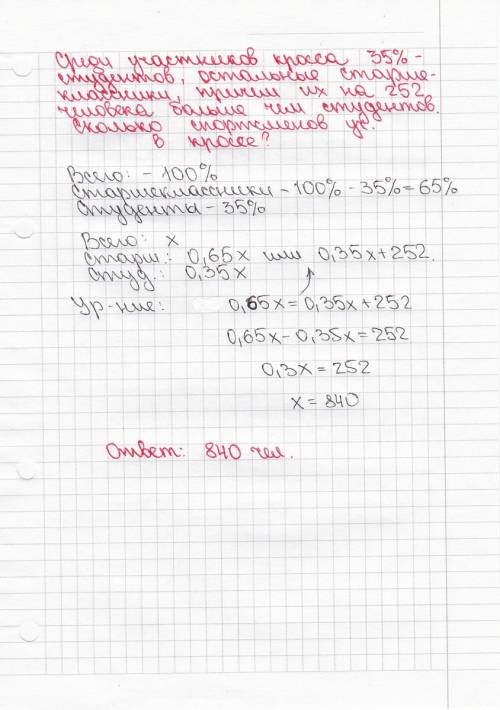 Среди участников кросса 35% -
студентов, остальные старше-
классники, причем их на 252
человека больше чем студентов.
Сколько спортсменов уч.
в кроссе?
Всего: - 100%
Старшеклассники - 100% - 35% = 65%
Студенты - 35%
Всего: x
Старш.: 0,65x или 0,35x+252.
Студ.: 0,35x
Ур-ние: 0,65x = 0,35x + 252
0,65x - 0,35x = 252
0,3x = 252
x = 840
Ответ: 840 чел.